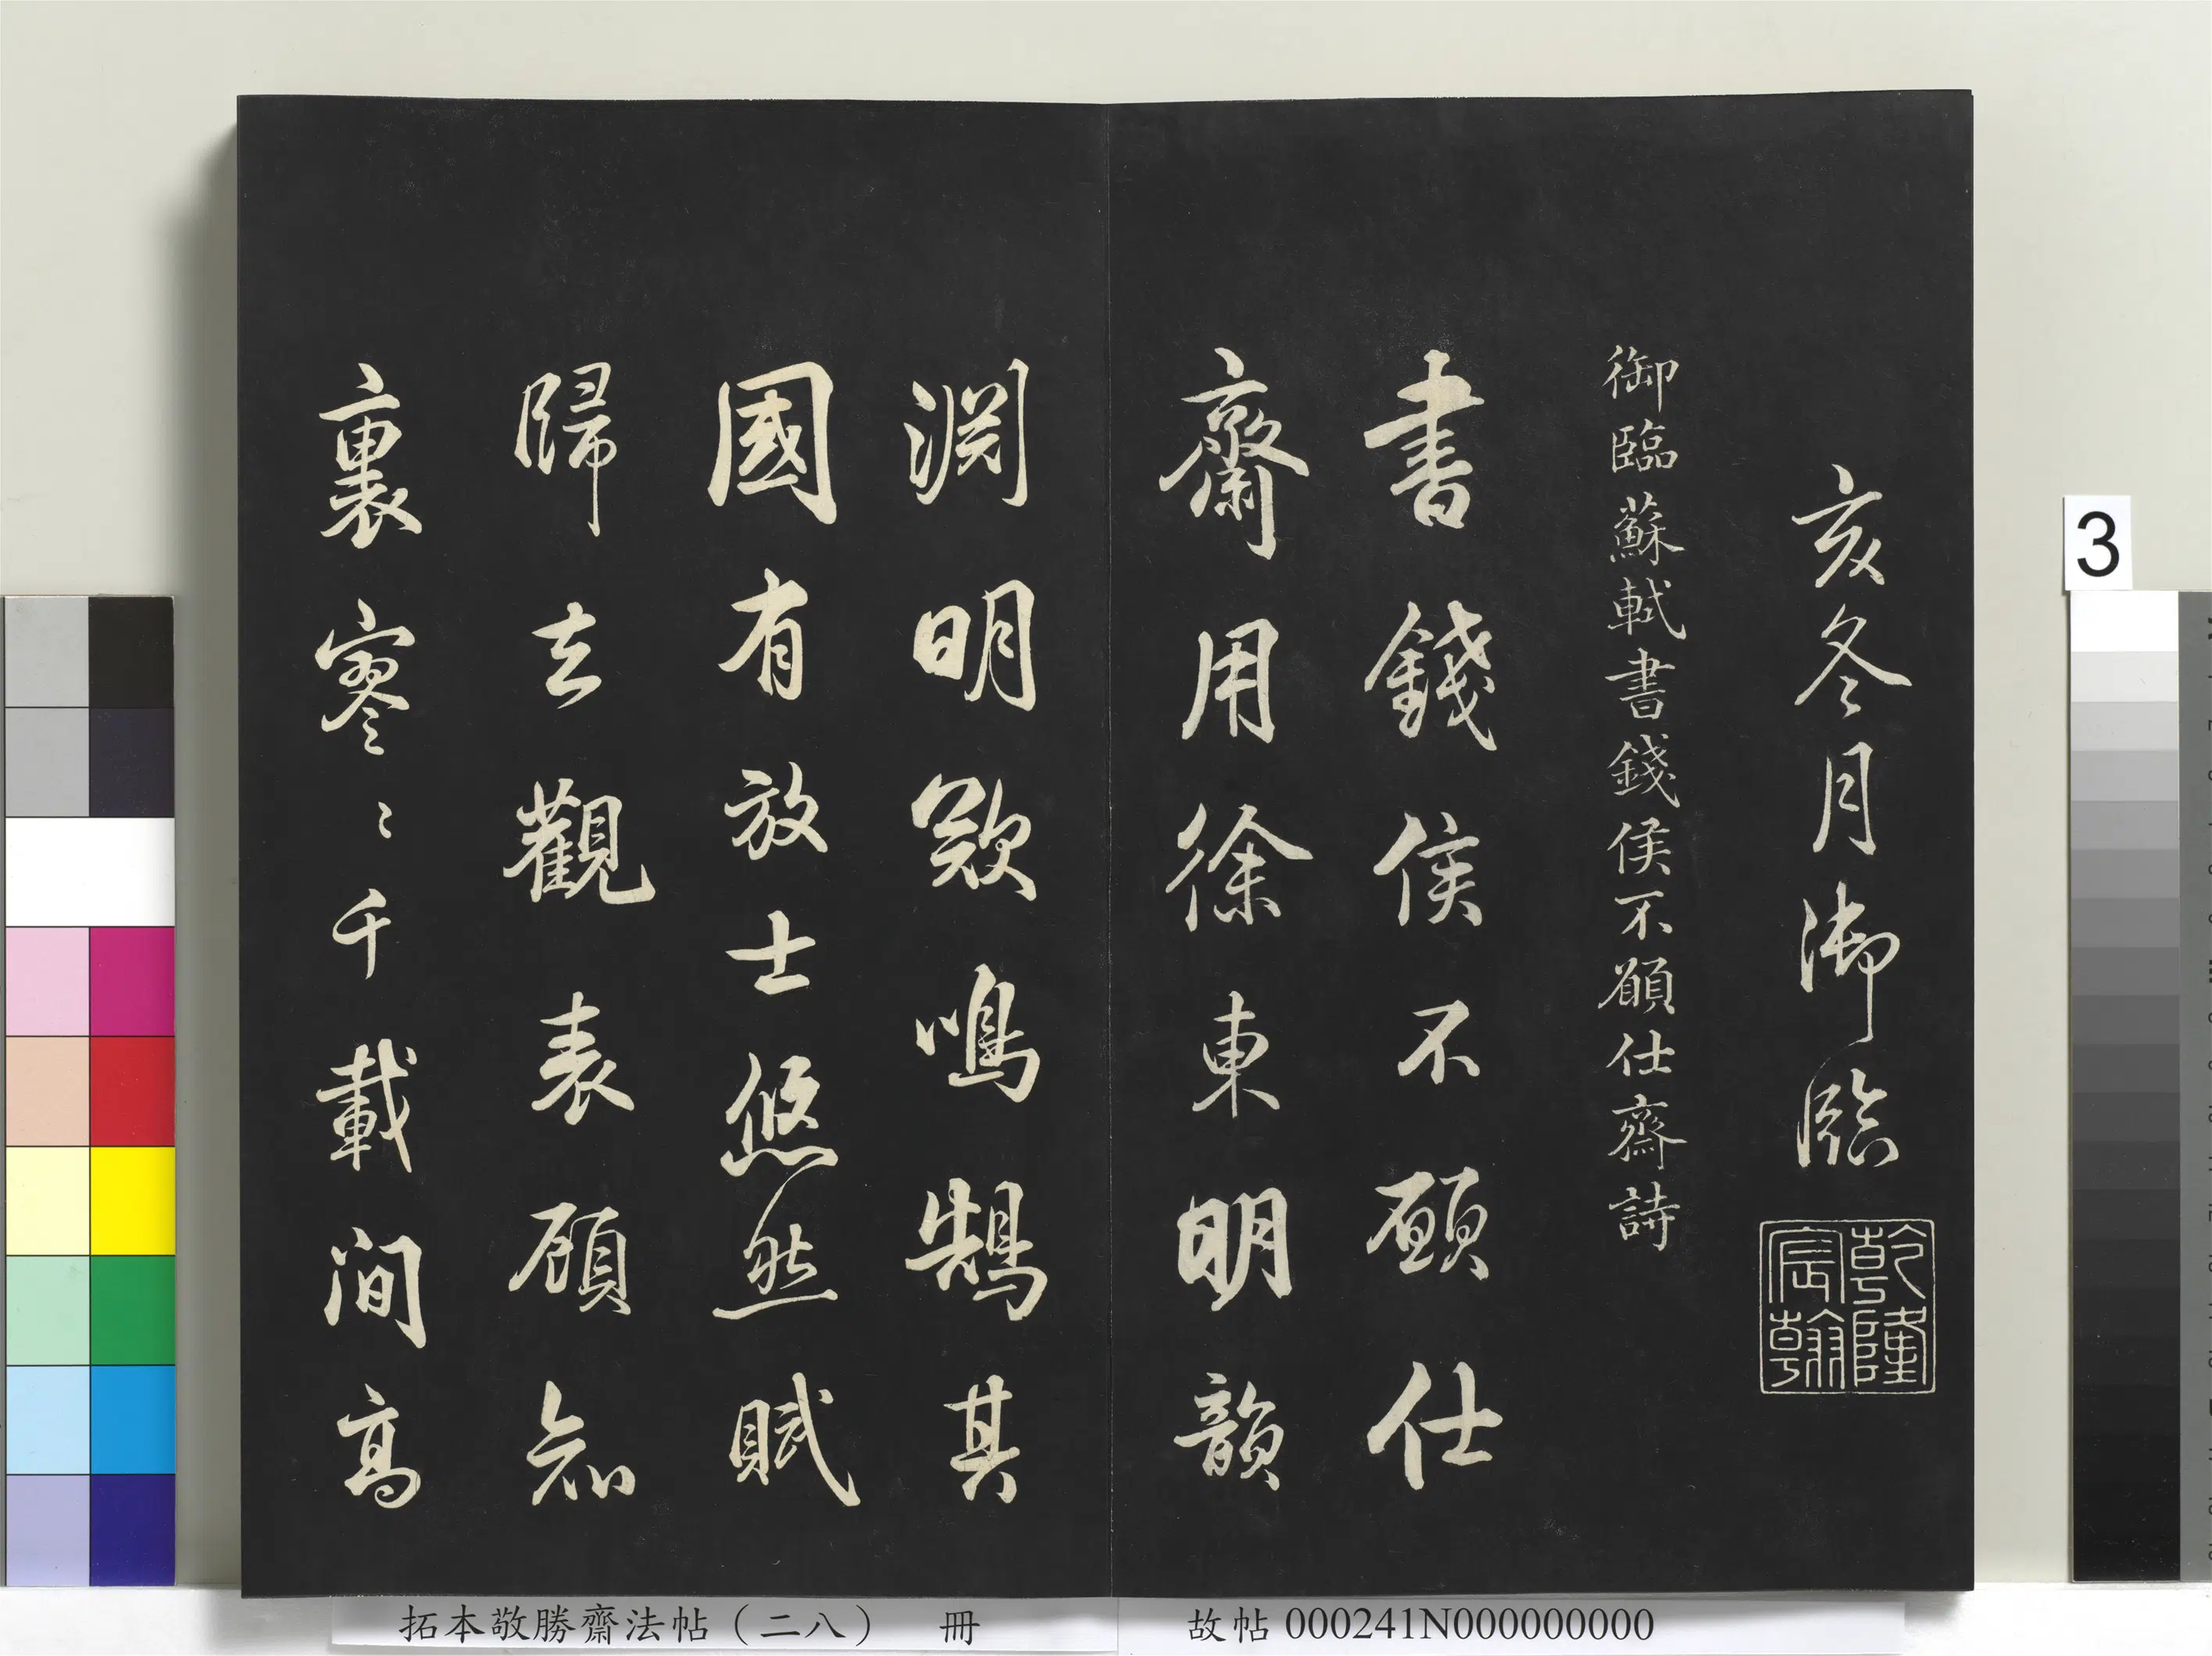 亥冬月御臨
乾隆
宸翰
御臨蘇軾書錢侯不願仕齋詩
書錢侯不願仕
齋用徐東明韻
淵明欵鳴鵠其
國有放士悠然賦
歸去觀表願知
裏寥〻千載間高
3
拓本敬勝齋法帖（二八） 冊
故帖 000241N000000000